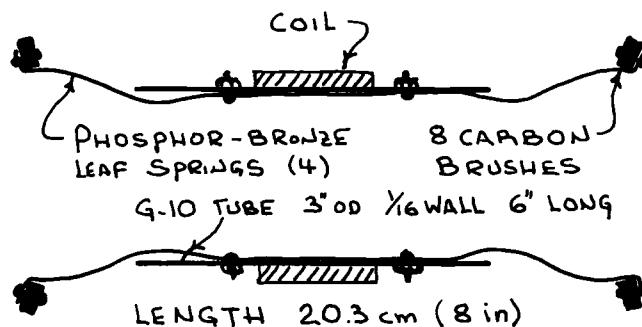 COIL
PHOSPHOR-BRONZE
LEAF SPRINGS (4)
8 CARBON
BRUSHES
G-10 TUBE 3" OD 1/16 WALL 6" LONG
LENGTH 20.3 cm (8 in)